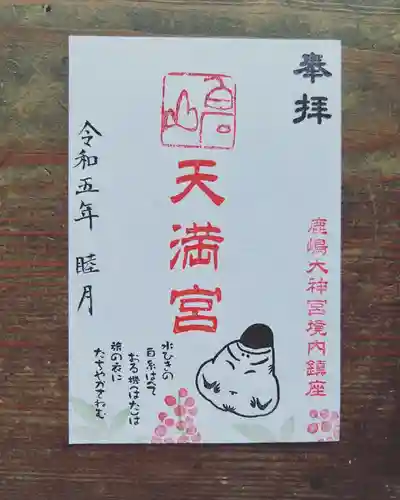 奉拝
鹿嶋大神宮境内鎮座
天満宮
水ひきの
白糸はへて
おる機(はた)は
旅の衣に
たちやかさねむ
令和五年 睦月